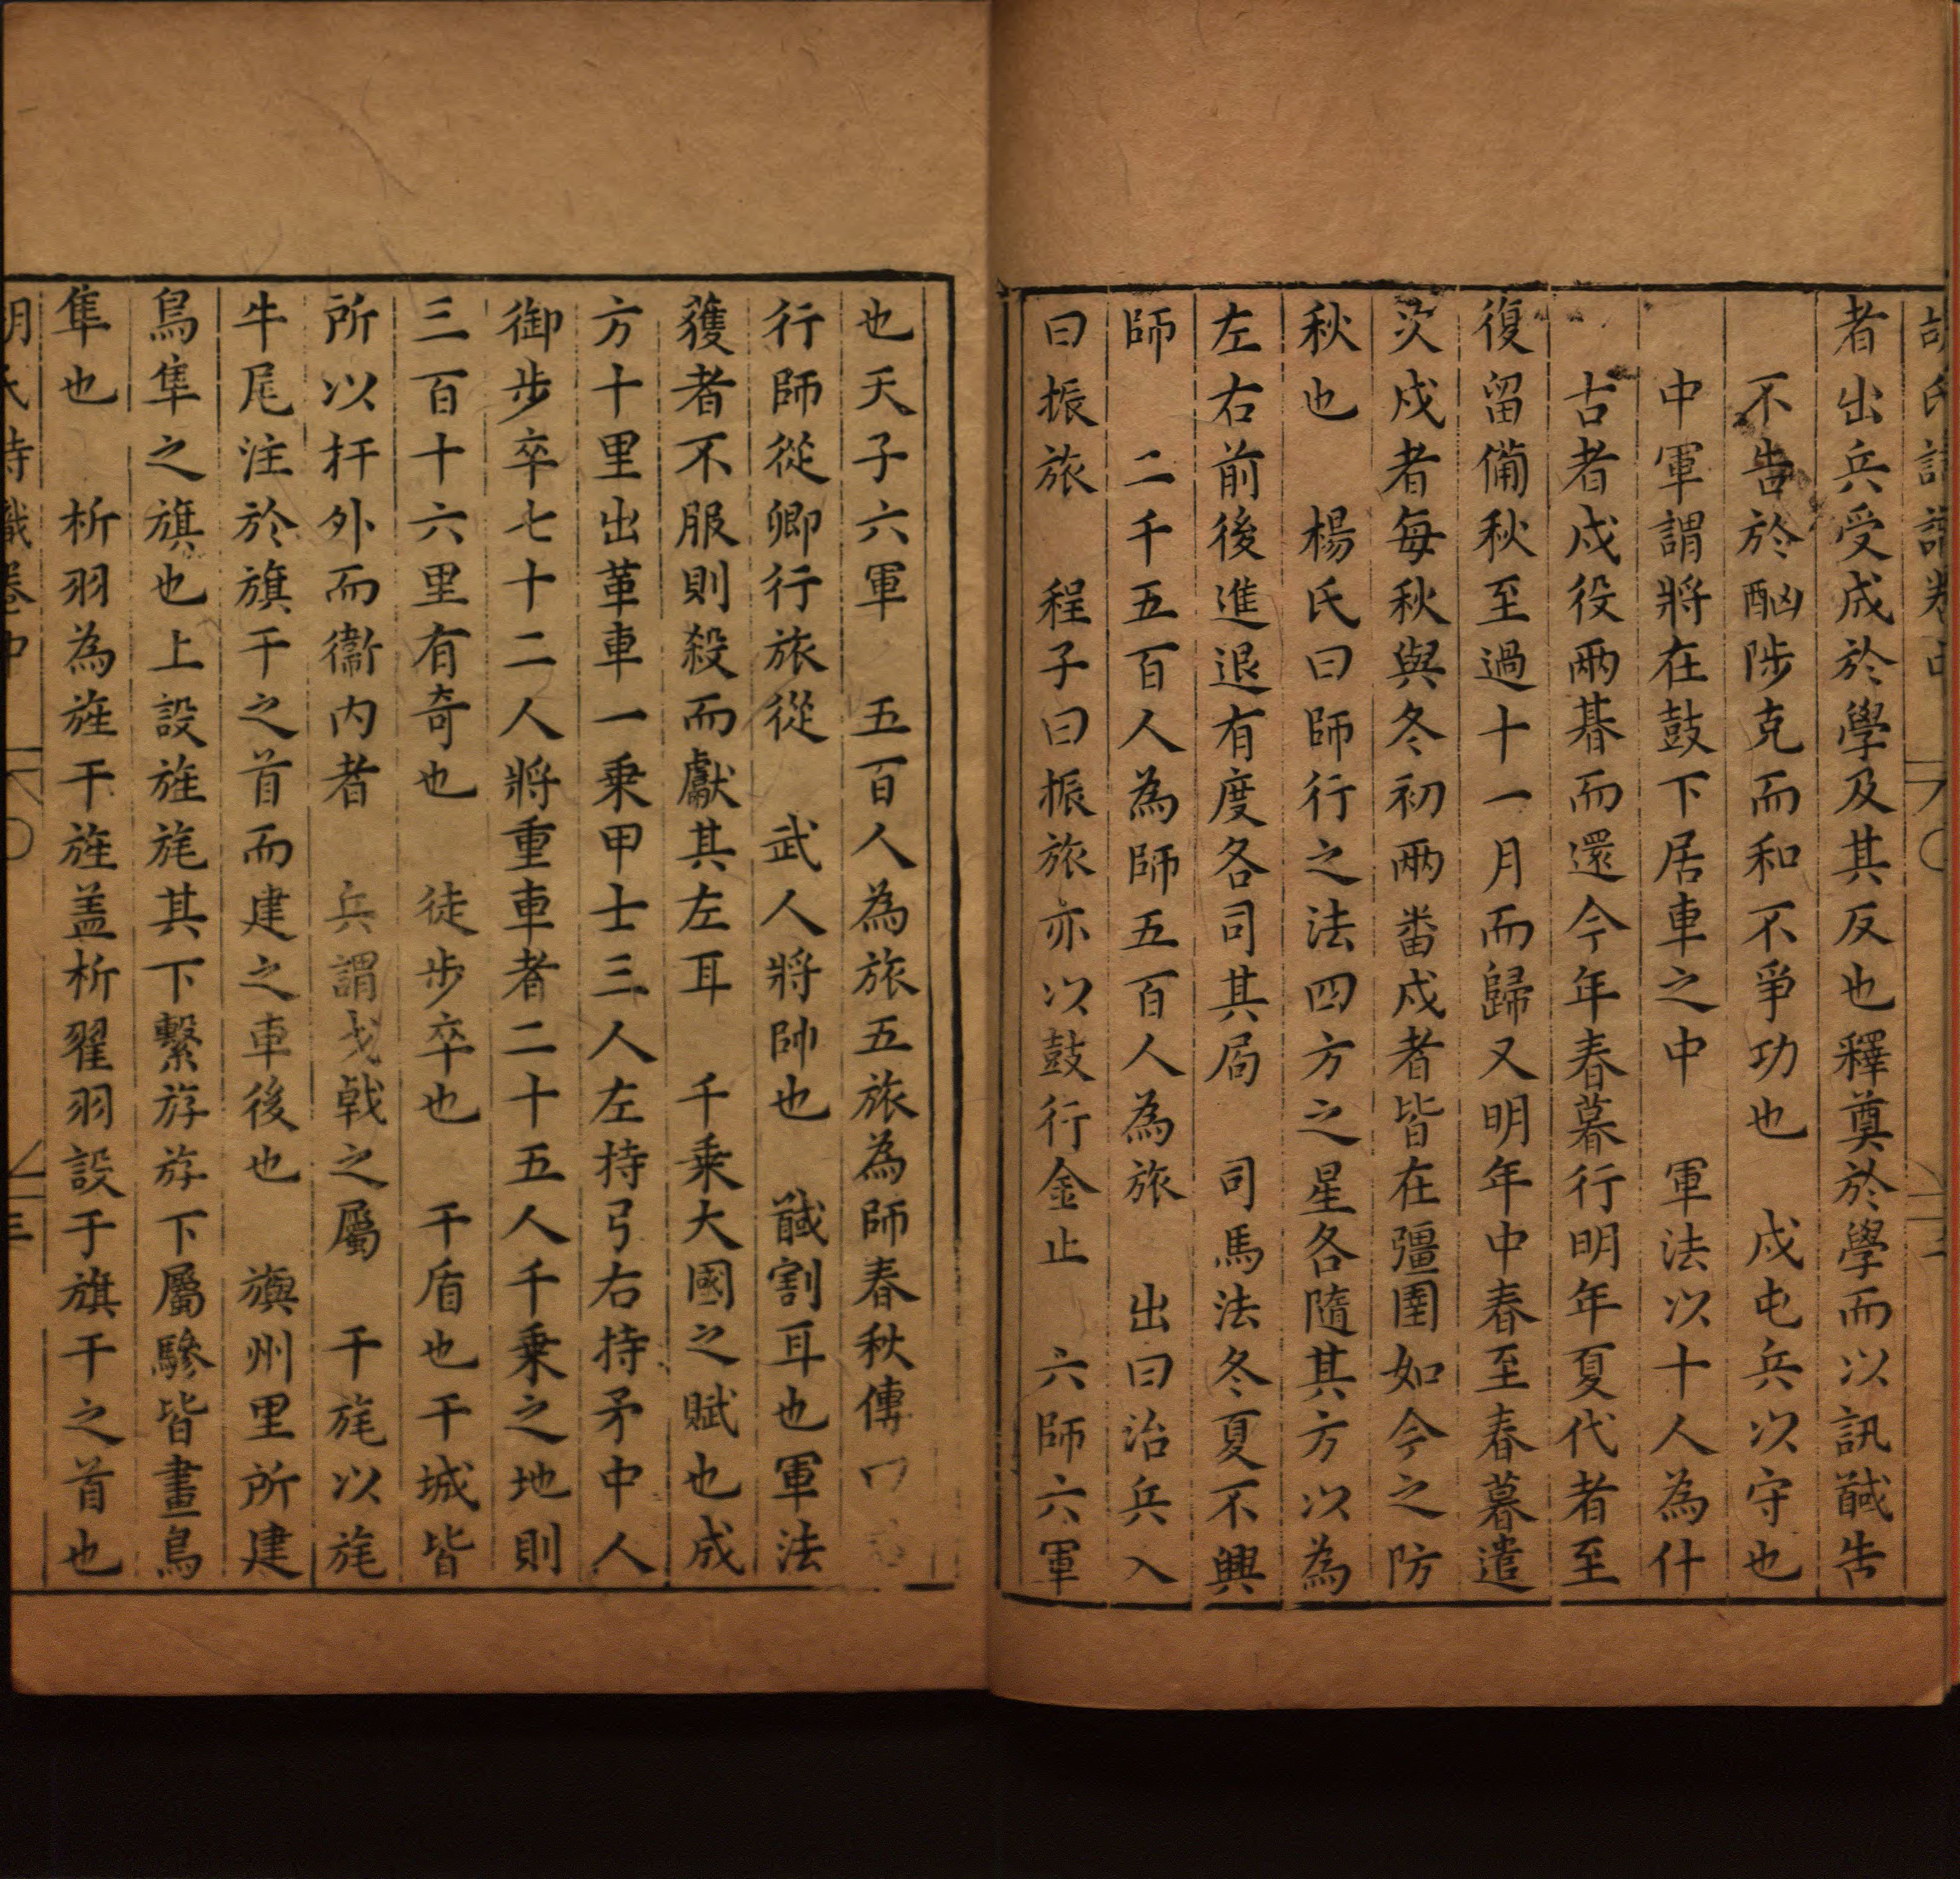 者出兵受成於學及其反也釋奠於學而以訊馘告
不告於酗陟克而和不爭功也　戍屯兵以守也
中軍謂將在鼓下居車之中　軍法以十人為什
古者戍役兩朞而還今年春暮行明年夏代者至
復留備秋至過十一月而歸又明年中春至春暮遣
次戍者每秋與冬初兩番戍者皆在疆圉如今之防
秋也　楊氏曰師行之法四方之星各隨其方以為
左右前後進退有度各司其局　司馬法冬夏不興
師　二千五百人為師五百人為旅　出曰治兵入
曰振旅　程子曰振旅亦以鼓行金止　六師六軍
也天子六軍　五百人為旅五旅為師春秋傳
行師從卿行旅從　武人將帥也　馘割耳也軍法
獲者不服則殺而獻其左耳　千乘大國之賦也成
方十里出革車一乘甲士三人左持弓右持矛中人
御步卒七十二人將重車者二十五人千乘之地則
三百十六里有奇也　徒步卒也　干盾也干城皆
所以扞外而衞內者　兵謂戈戟之屬　干旄以旄
牛尾注於旗干之首而建之車後也　旟州里所建
鳥隼之旗也上設旌旄其下繫斿斿下屬縿皆畫鳥
隼也　析羽為旌干旌盖析翟羽設于旗干之首也